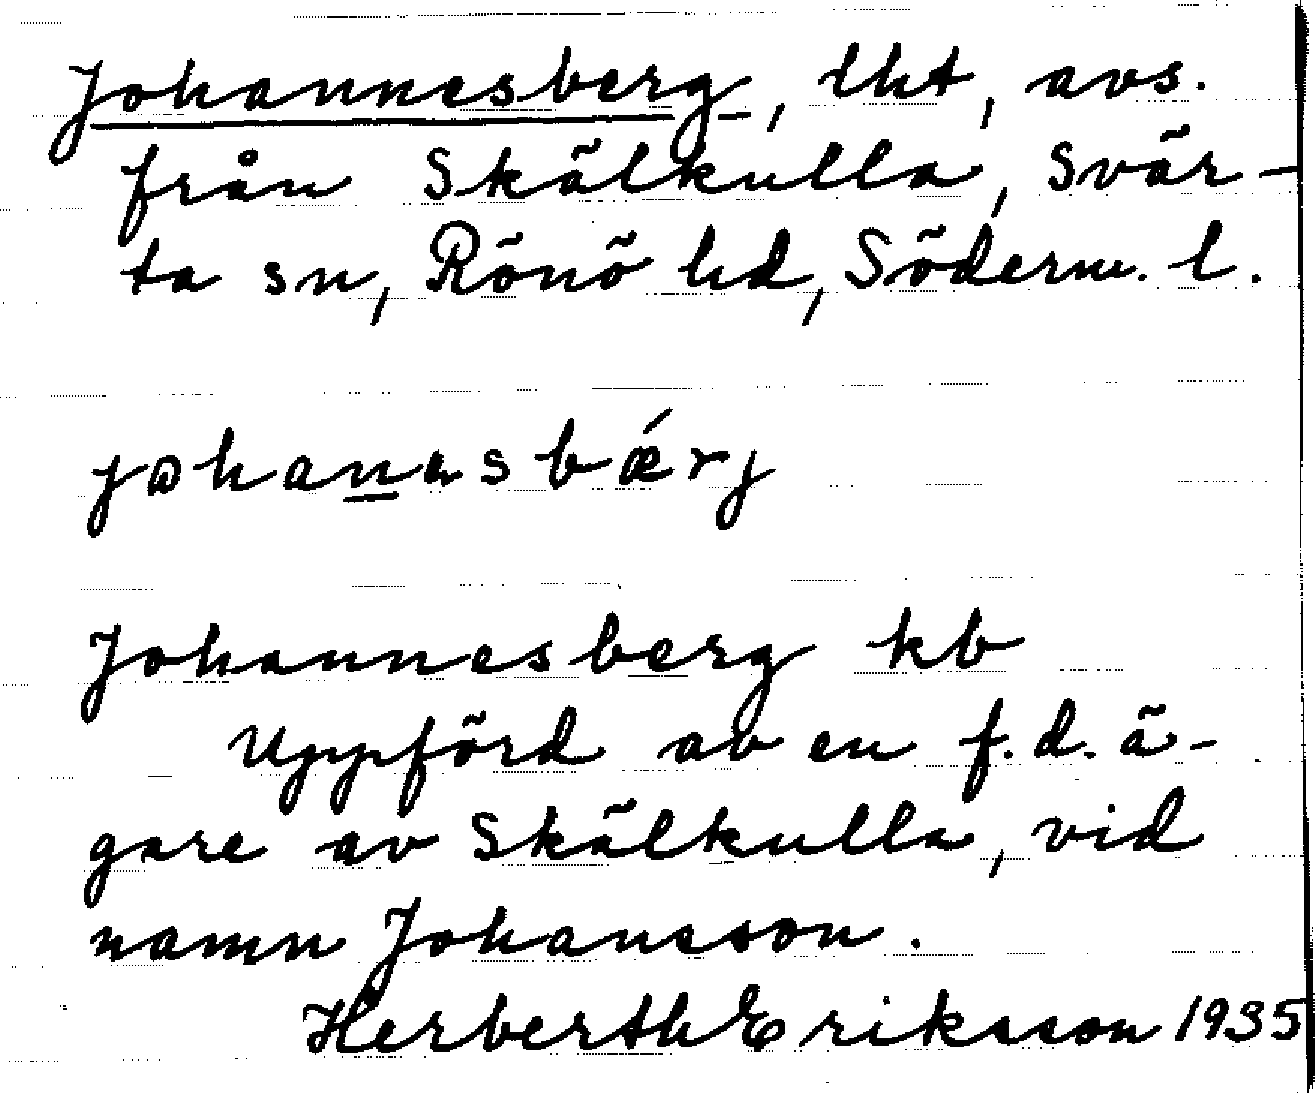 Johannesberg, lht, avs.
från Skälkulla, Svär-
ta sn, Rönö hd, Söderm. l.
johanesbǽrj
Johannesberg kb
Uppförd av en f.d. ä-
gare av Skälkulla, vid
namn Johansson.
Herberth Eriksson 1935